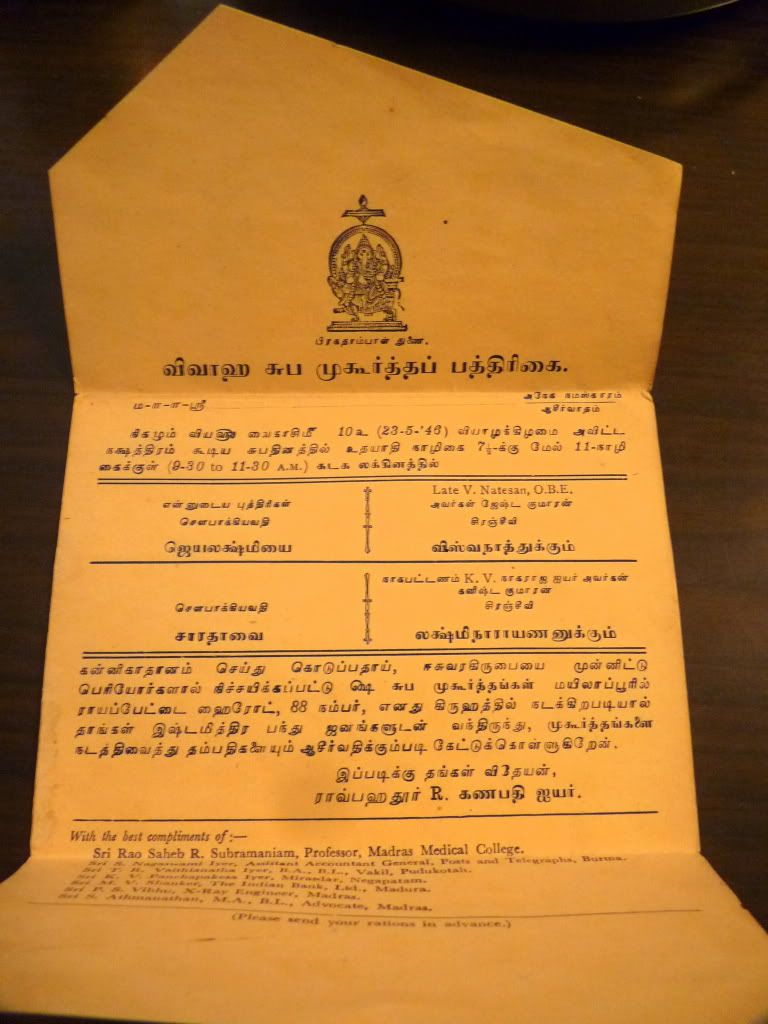 பிரகதாம்பாள் துணை.
விவாஹ சுப முகூர்த்தப் பத்திரிகை.
ம-ா-ா-ஸ்ரீ
அநேக நமஸ்காரம்
ஆசீர்வாதம்
நிகழும் வியளு வைகாசிமீ 10உ (23-5-'46) வியாழக்கிழமை அவிட்ட
நக்ஷத்திரம் கூடிய சுபதினத்தில் உதயாதி நாழிகை 7½-க்கு மேல் 11-நாழி
கைக்குள் (9-30 to 11-30 A.M.) கடக லக்கினத்தில்
என்னுடைய புத்திரிகள்
சௌபாக்கியவதி
ஜெயலக்ஷ்மியை
Late V. Natesan, O.B.E.
அவர்கள் ஜேஷ்ட குமாரன்
சிரஞ்சீவி
விஸ்வநாத்துக்கும்
சௌபாக்கியவதி
சாரதாவை
நாகபட்டணம் K. V. நாகராஜ ஐயர் அவர்கள்
கனிஷ்ட குமாரன்
சிரஞ்சீவி
லக்ஷ்மிநாராயணனுக்கும்
கன்னிகாதானம் செய்து கொடுப்பதாய், ஈசுவரகிருபையை முன்னிட்டு
பெரியோர்களால் நிச்சயிக்கப்பட்டு ஷெ சுப முகூர்த்தங்கள் மயிலாப்பூரில்
ராயப்பேட்டை ஹைரோட், 88 நம்பர், எனது கிருஹத்தில் நடக்கிறபடியால்
தாங்கள் இஷ்டமித்திர பந்து ஜனங்களுடன் வந்திருந்து, முகூர்த்தங்களை
நடத்திவைத்து தம்பதிகளையும் ஆசீர்வதிக்கும்படி கேட்டுக்கொள்ளுகிறேன்.
இப்படிக்கு தங்கள் விதேயன்,
ராவ்பஹதூர் R. கணபதி ஐயர்.
With the best compliments of :—
Sri Rao Saheb R. Subramaniam, Professor, Madras Medical College.
Sri S. Nagaswami Iyer, Assistant Accountant General, Posts and Telegraphs, Burma.
Sri T. R. Vaithianatha Iyer, B.A., B.L., Vakil, Pudukotah.
Sri K. V. Panchapakesa Iyer, Mirasdar, Negapatam.
Sri M. V. Shanker, The Indian Bank, Ltd., Madura.
Sri P. S. Vibhu, X-Ray Engineer, Madras.
Sri S. Athmanathan, M.A., B.L., Advocate, Madras.
(Please send your rations in advance.)